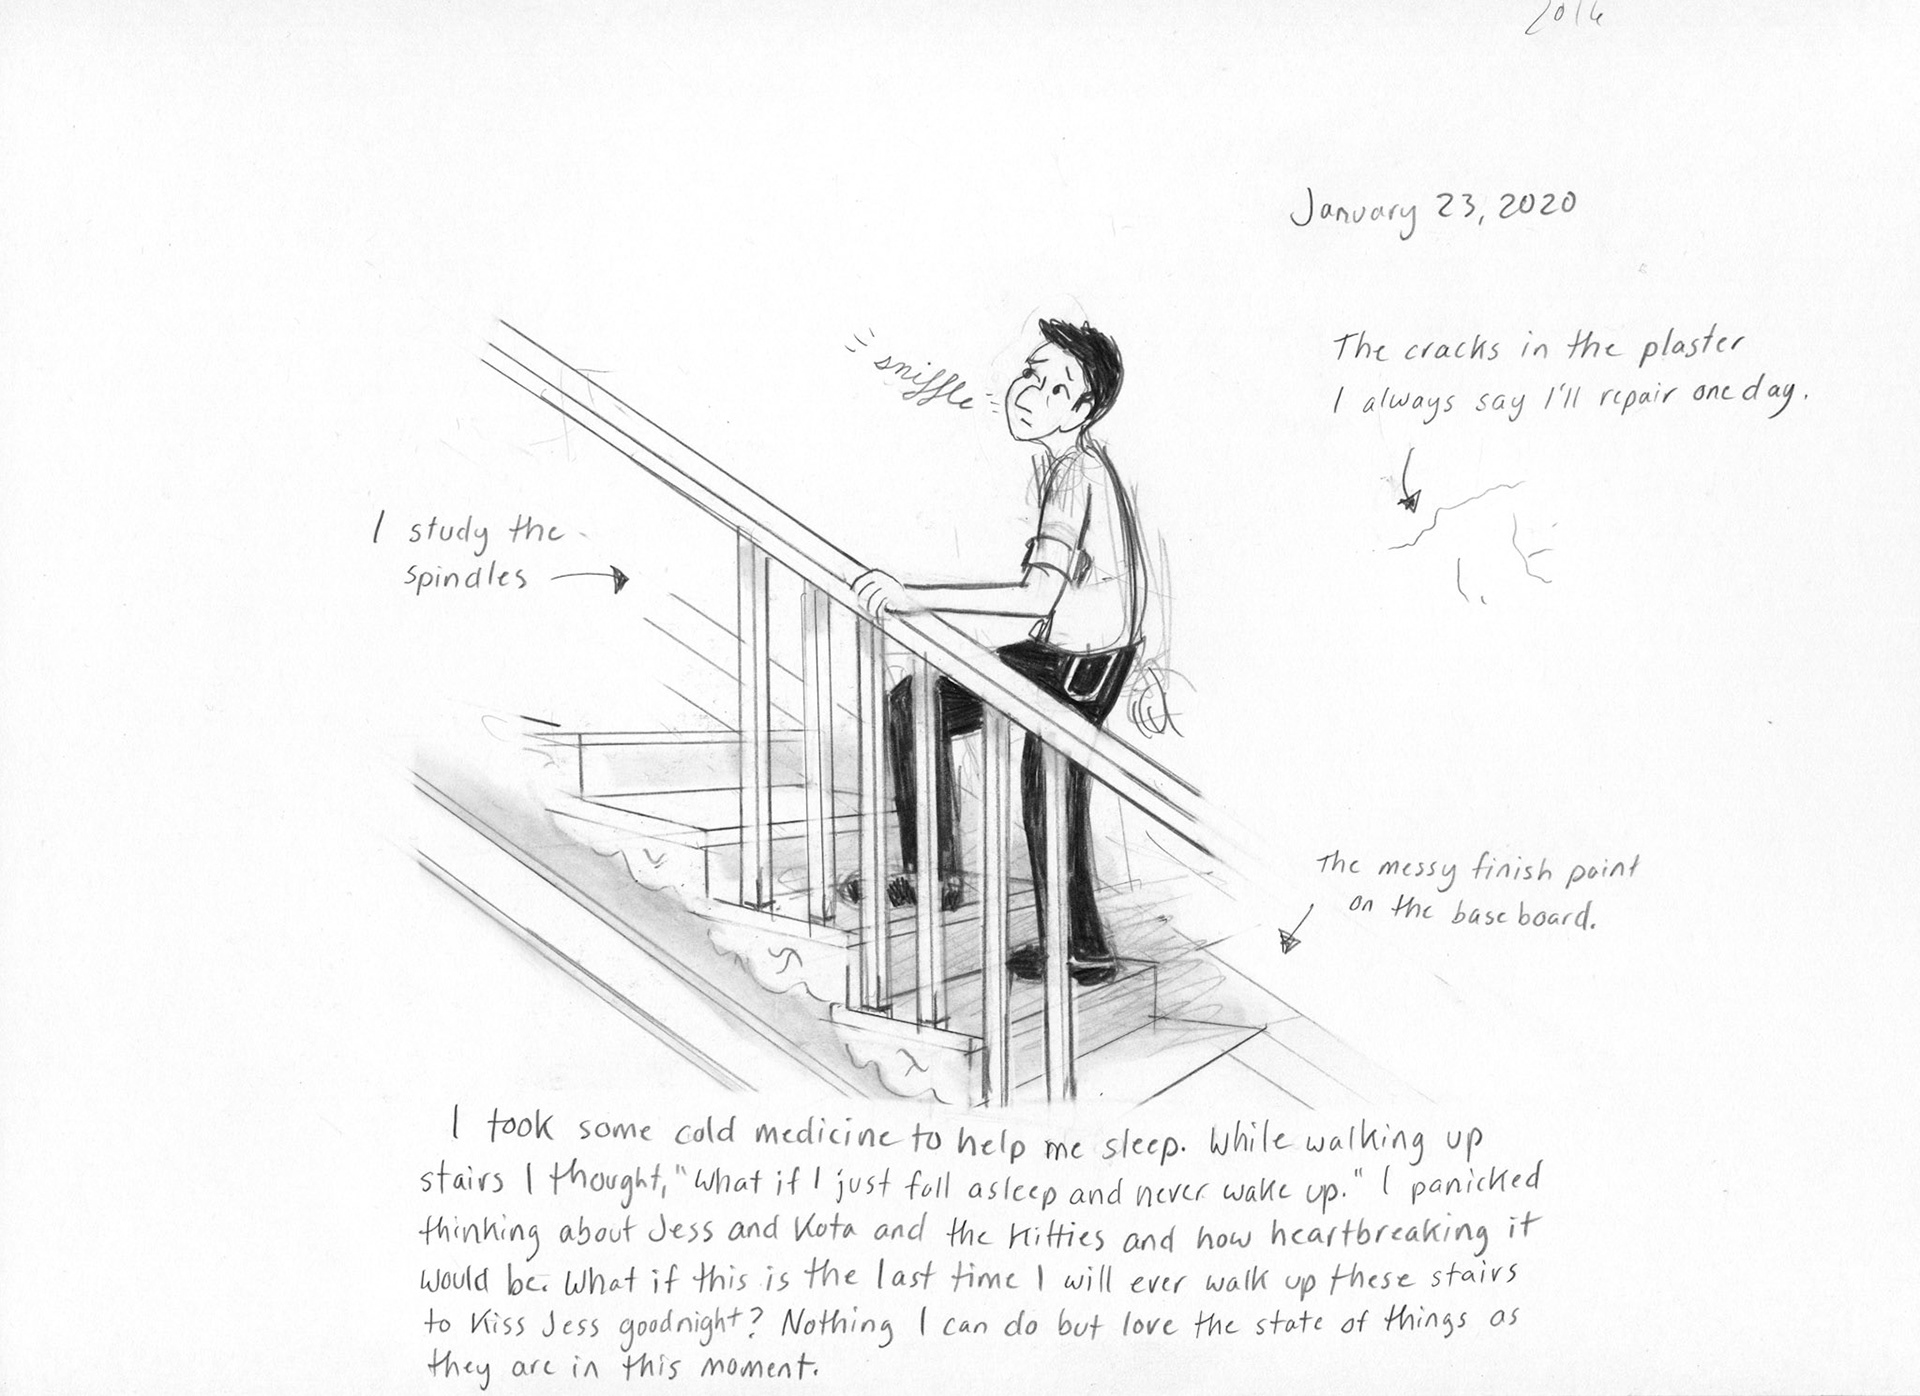 2016
January 23, 2020
The cracks in the plaster
I always say I'll repair one day.
sniffle
I study the
spindles
The messy finish paint
on the baseboard.
I took some cold medicine to help me sleep. While walking up
stairs I thought, "What if I just fall asleep and never wake up." I panicked
thinking about Jess and Kota and the Kitties and how heartbreaking it
would be. What if this is the last time I will ever walk up these stairs
to Kiss Jess goodnight? Nothing I can do but love the state of things as
they are in this moment.